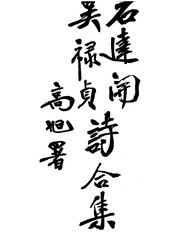 石達開詩合集
吴禄貞
高旭署